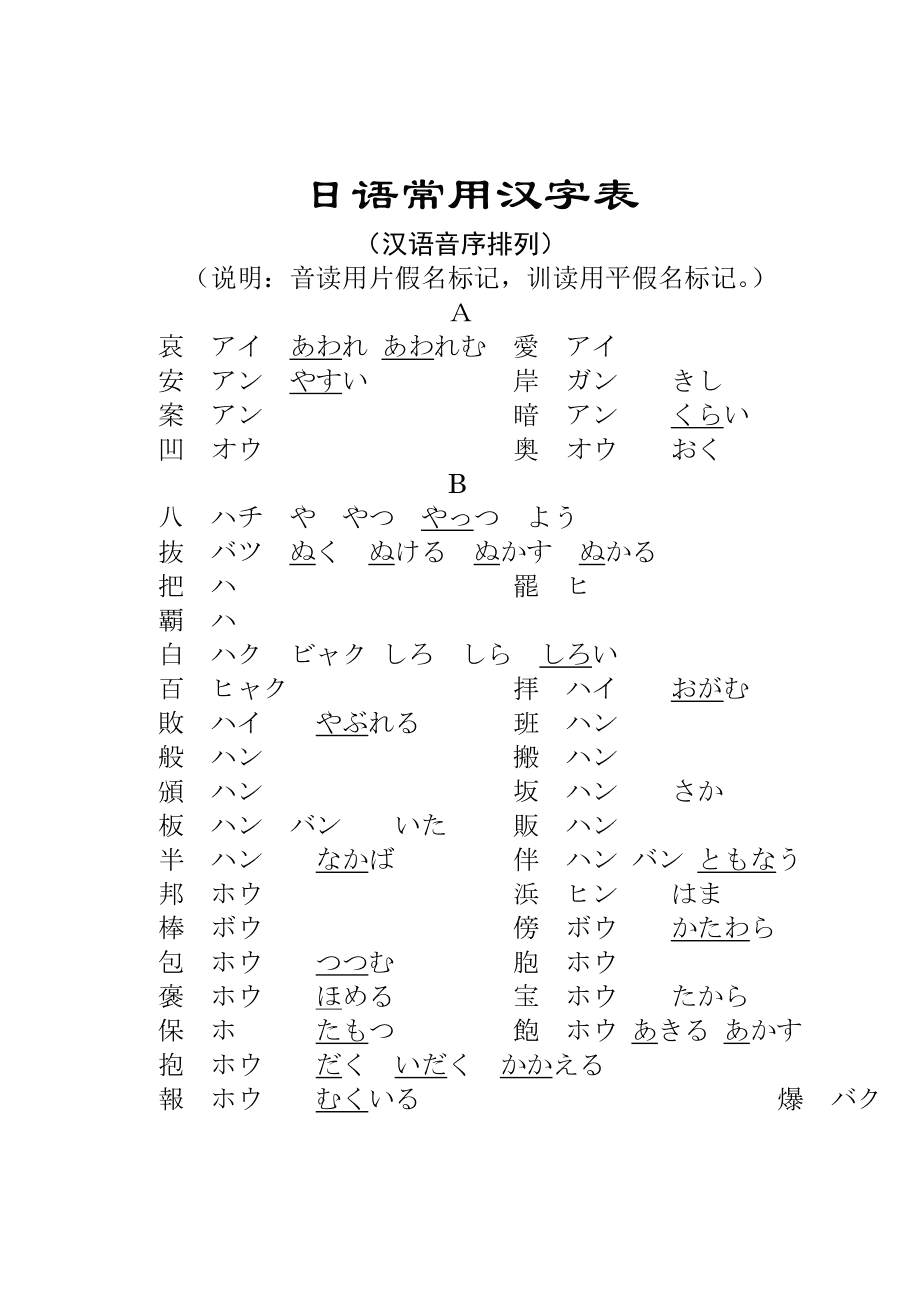 日语常用汉字表
（汉语音序排列）
（说明：音读用片假名标记，训读用平假名标记。）
A
哀　アイ　あわれ あわれむ　愛　アイ
安　アン　やすい　岸　ガン　きし
案　アン　暗　アン　くらい
凹　オウ　奥　オウ　おく
B
八　ハチ　や　やつ　やっつ　よう
抜　バツ　ぬく　ぬける　ぬかす　ぬかる
把　ハ　罷　ヒ
覇　ハ
白　ハク　ビャク しろ　しら　しろい
百　ヒャク　拝　ハイ　おがむ
敗　ハイ　やぶれる　班　ハン
般　ハン　搬　ハン
頒　ハン　坂　ハン　さか
板　ハン　バン　いた　販　ハン
半　ハン　なかば　伴　ハン バン ともなう
邦　ホウ　浜　ヒン　はま
棒　ボウ　傍　ボウ　かたわら
包　ホウ　つつむ　胞　ホウ
褒　ホウ　ほめる　宝　ホウ　たから
保　ホ　たもつ　飽　ホウ あきる あかす
抱　ホウ　だく　いだく　かかえる
報　ホウ　むくいる　爆　バク